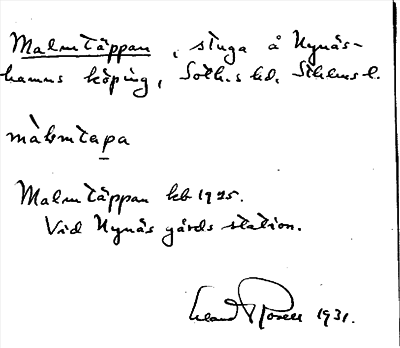 Malmtäppan, stuga å Nynäs-
hamns köping, Soth.s hd. Sthlms l.
màlmtapa
Malmtäppan kb 1925.
Vid Nynäs gårds station.
1931.